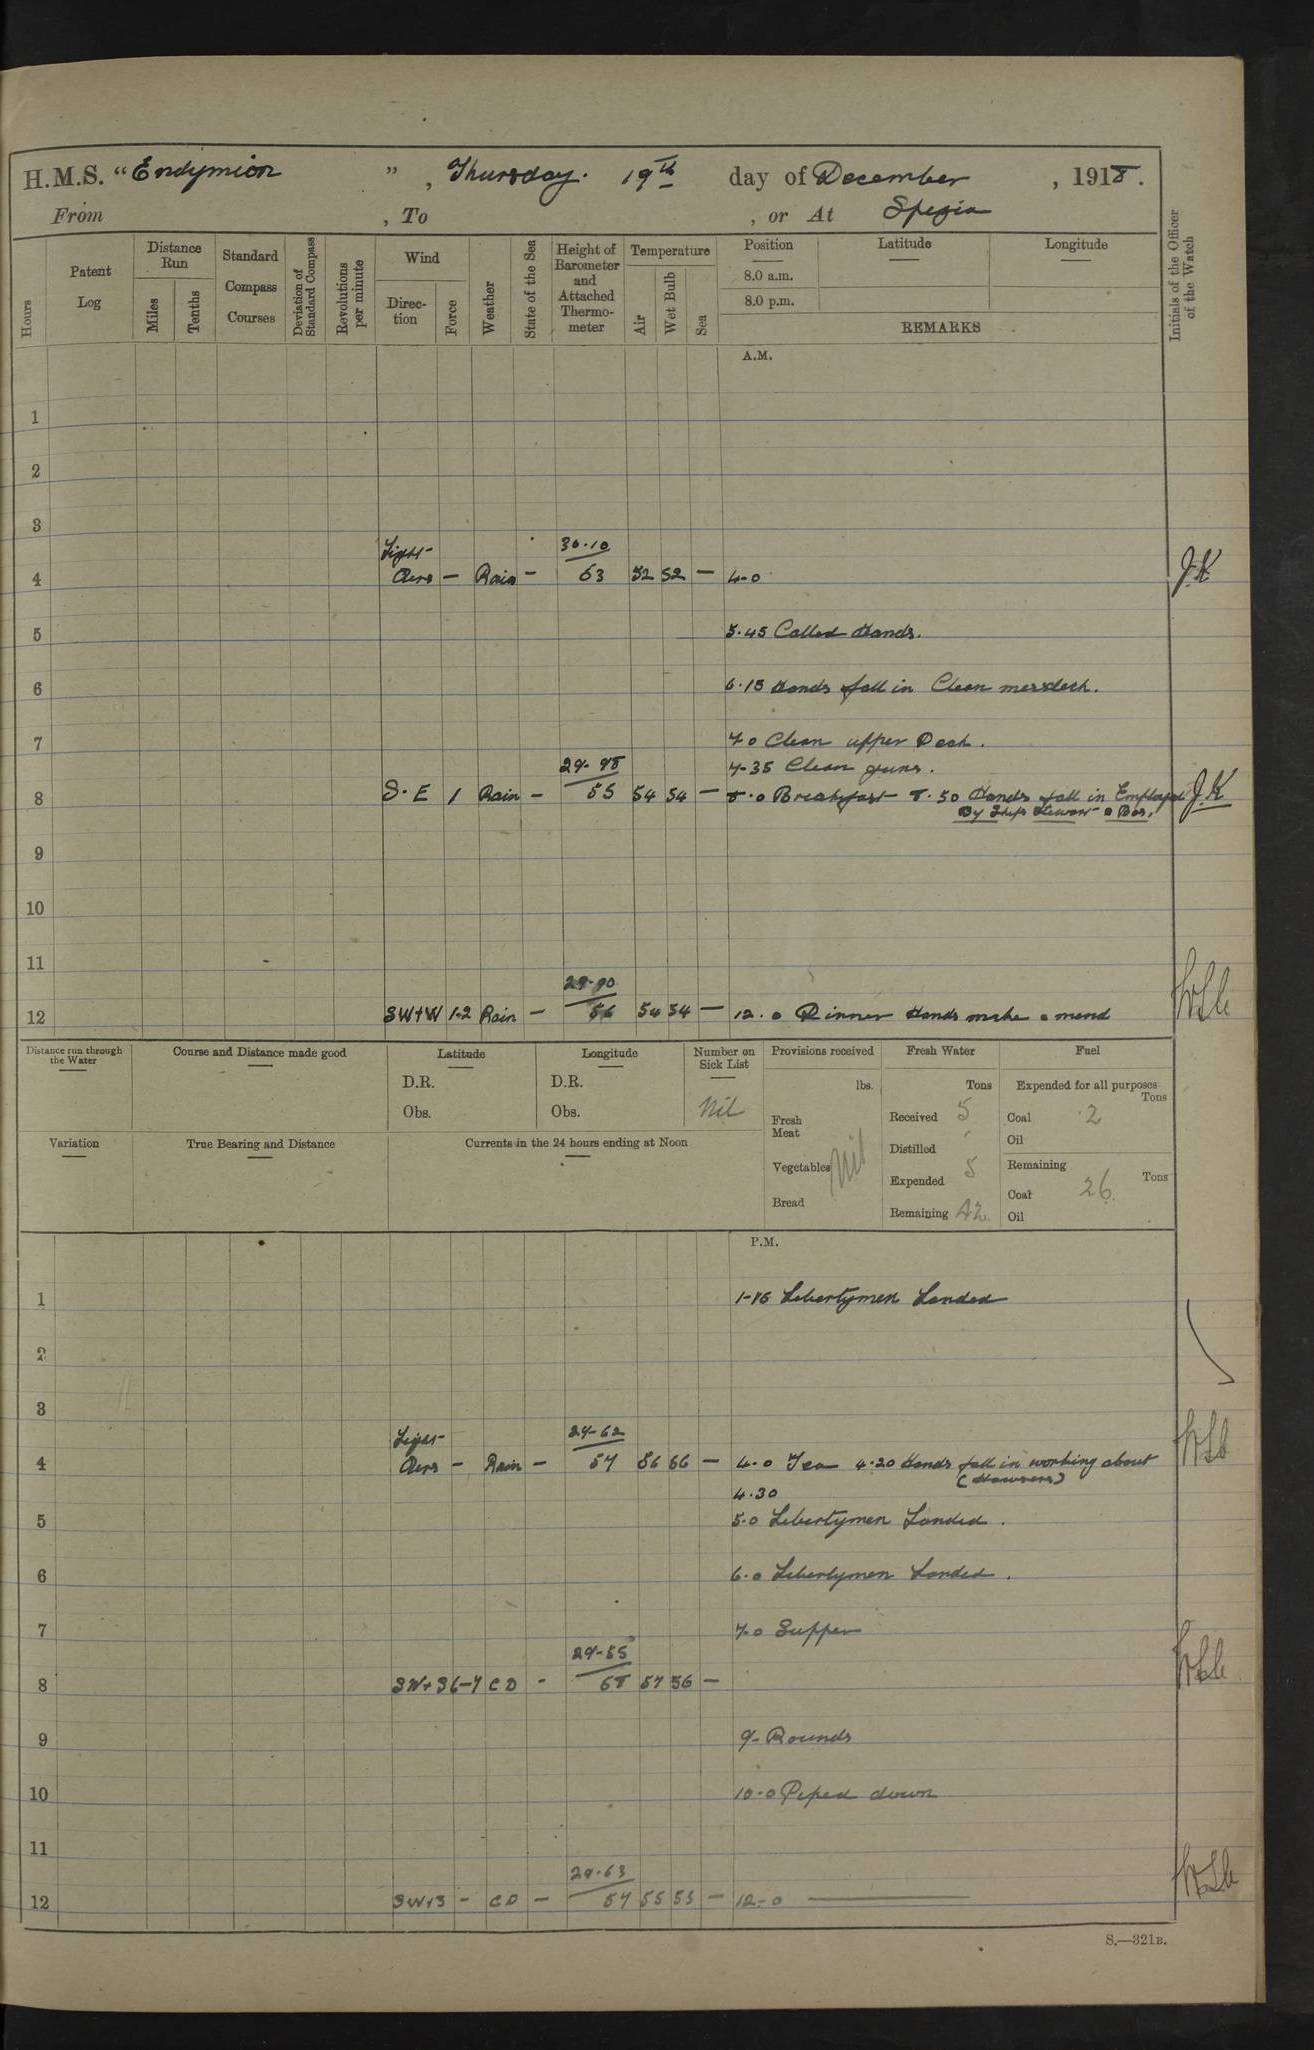 H.M.S. "Endymion", Thursday. 19th day of December, 1918.
From , To , or At Spezia
Hours
Patent Log
Distance Run
Miles
Tenths
Standard Compass Courses
Deviation of Standard Compass
Revolutions per minute
Wind
Direction
Force
Weather
State of the Sea
Height of Barometer and Attached Thermometer
Temperature
Air
Wet Bulb
Sea
Position
8.0 a.m.
8.0 p.m.
Latitude
Longitude
REMARKS
Initials of the Officer of the Watch
A.M.
1
2
3
Light 30.10
4 Airs — Rain — 63 52 52 — 4-0 J.K
5 5.45 Called Hands.
6 6.15 Hands fall in Clean messdeck.
7 7.0 Clean upper Deck.
29.98 7-35 Clean guns.
8 S.E 1 Rain — 55 54 54 — 8.0 Breakfast 8.50 Hands fall in Employed J.K
By Ships Steward & Bos.
9
10
11
29.90
12 SW+W 1-2 Rain — 56 54 54 — 12.0 Dinner Hands make & mend
Distance run through the Water
Course and Distance made good
Latitude
D.R.
Obs.
Longitude
D.R.
Obs.
Number on Sick List
Nil
Provisions received
lbs.
Fresh Meat
Vegetables Nil
Bread
Fresh Water
Tons
Received 5
Distilled
Expended 5
Remaining 42
Fuel
Expended for all purposes
Tons
Coal 2
Oil
Remaining
Tons
Coal 26
Oil
Variation
True Bearing and Distance
Currents in the 24 hours ending at Noon
P.M.
1 1-15 Libertymen Landed
2
3
Light 29-62
4 Airs — Rain — 57 56 56 — 4.0 Tea 4.20 Hands fall in working about
(Hawsers)
4.30
5 5.0 Libertymen Landed.
6 6.0 Libertymen Landed.
7 7.0 Supper
29-55
8 SW+S 6-7 C D - 58 57 56 —
9 9- Rounds
10 10.0 Piped down
11
29.63
12 SW+S - C D — 57 55 53 — 12.0
S.—321B.